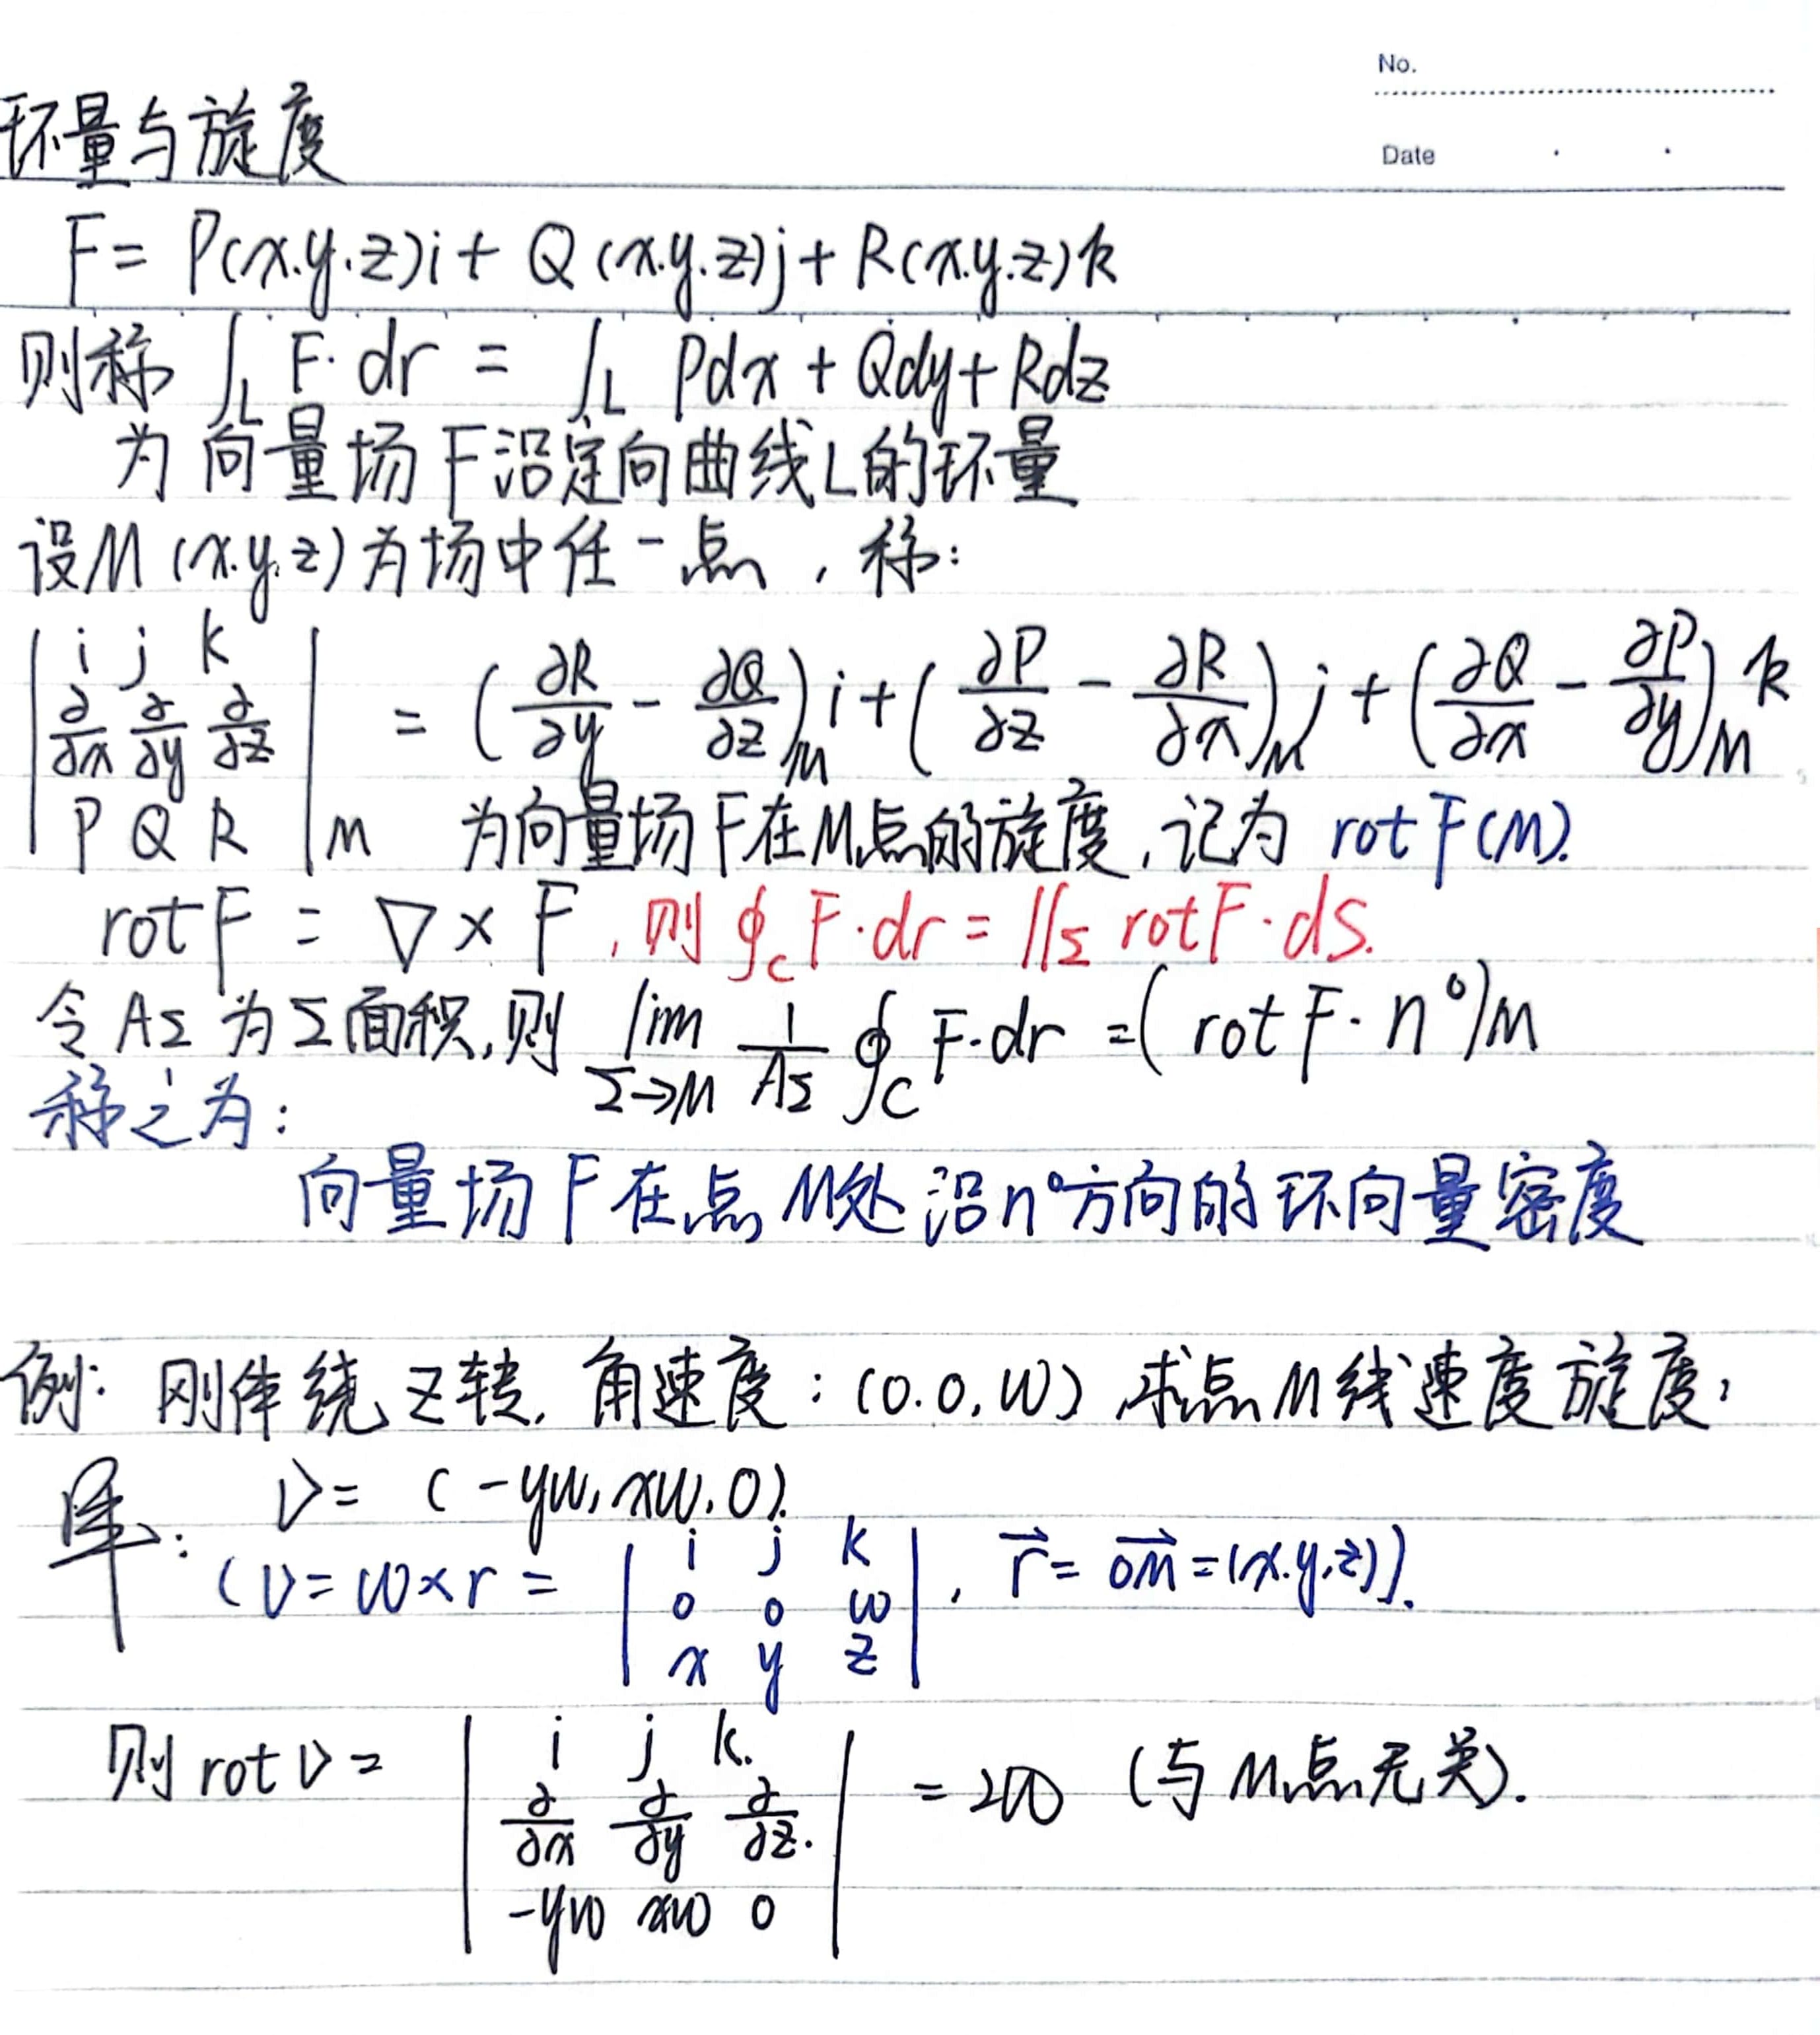 No.
Date
环量与旋度
F = P(x.y.z)i + Q(x.y.z)j + R(x.y.z)k
则称 ∫_L F·dr = ∫_L Pdx + Qdy + Rdz
为向量场F沿定向曲线L的环量
设M(x.y.z)为场中任一点，称：
| i j k |
| ∂/∂x ∂/∂y ∂/∂z | = (∂R/∂y - ∂Q/∂z)_M i + (∂P/∂z - ∂R/∂x)_M j + (∂Q/∂x - ∂P/∂y)_M k
| P Q R |_M 为向量场F在M点的旋度，记为 rot F(M).
rot F = ∇ × F，则 ∮_C F·dr = ∬_Σ rot F·dS.
令 A_Σ 为Σ面积，则 lim_{Σ→M} 1/A_Σ ∮_C F·dr = (rot F·n°)_M
称之为：
向量场F在点M处沿n°方向的环向量密度
例：刚体绕Z转，角速度：(0.0,ω)，求点M线速度旋度：
解： v = (-yω, xω, 0).
(v = ω×r = | i j k |
| 0 0 ω | , r⃗ = OM⃗ = (x.y.z)).
| x y z |
则 rot v = | i j k. |
| ∂/∂x ∂/∂y ∂/∂z. | = 2ω (与M点无关).
| -yω xω 0 |